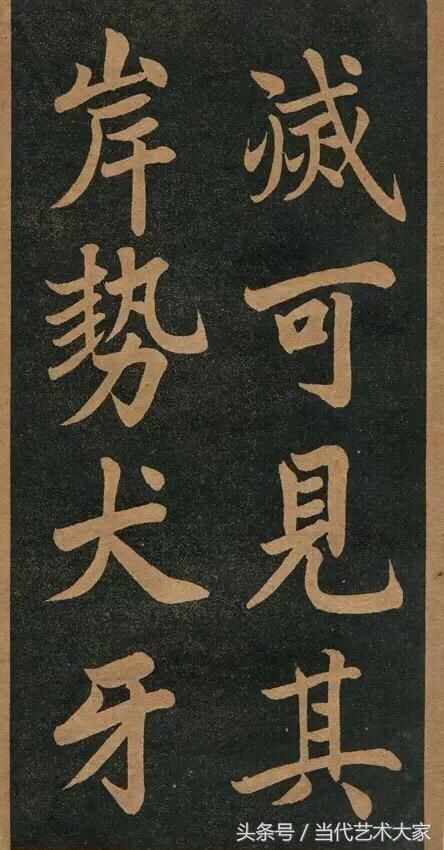 滅可見其
岸勢犬牙
头条号/当代艺术大家